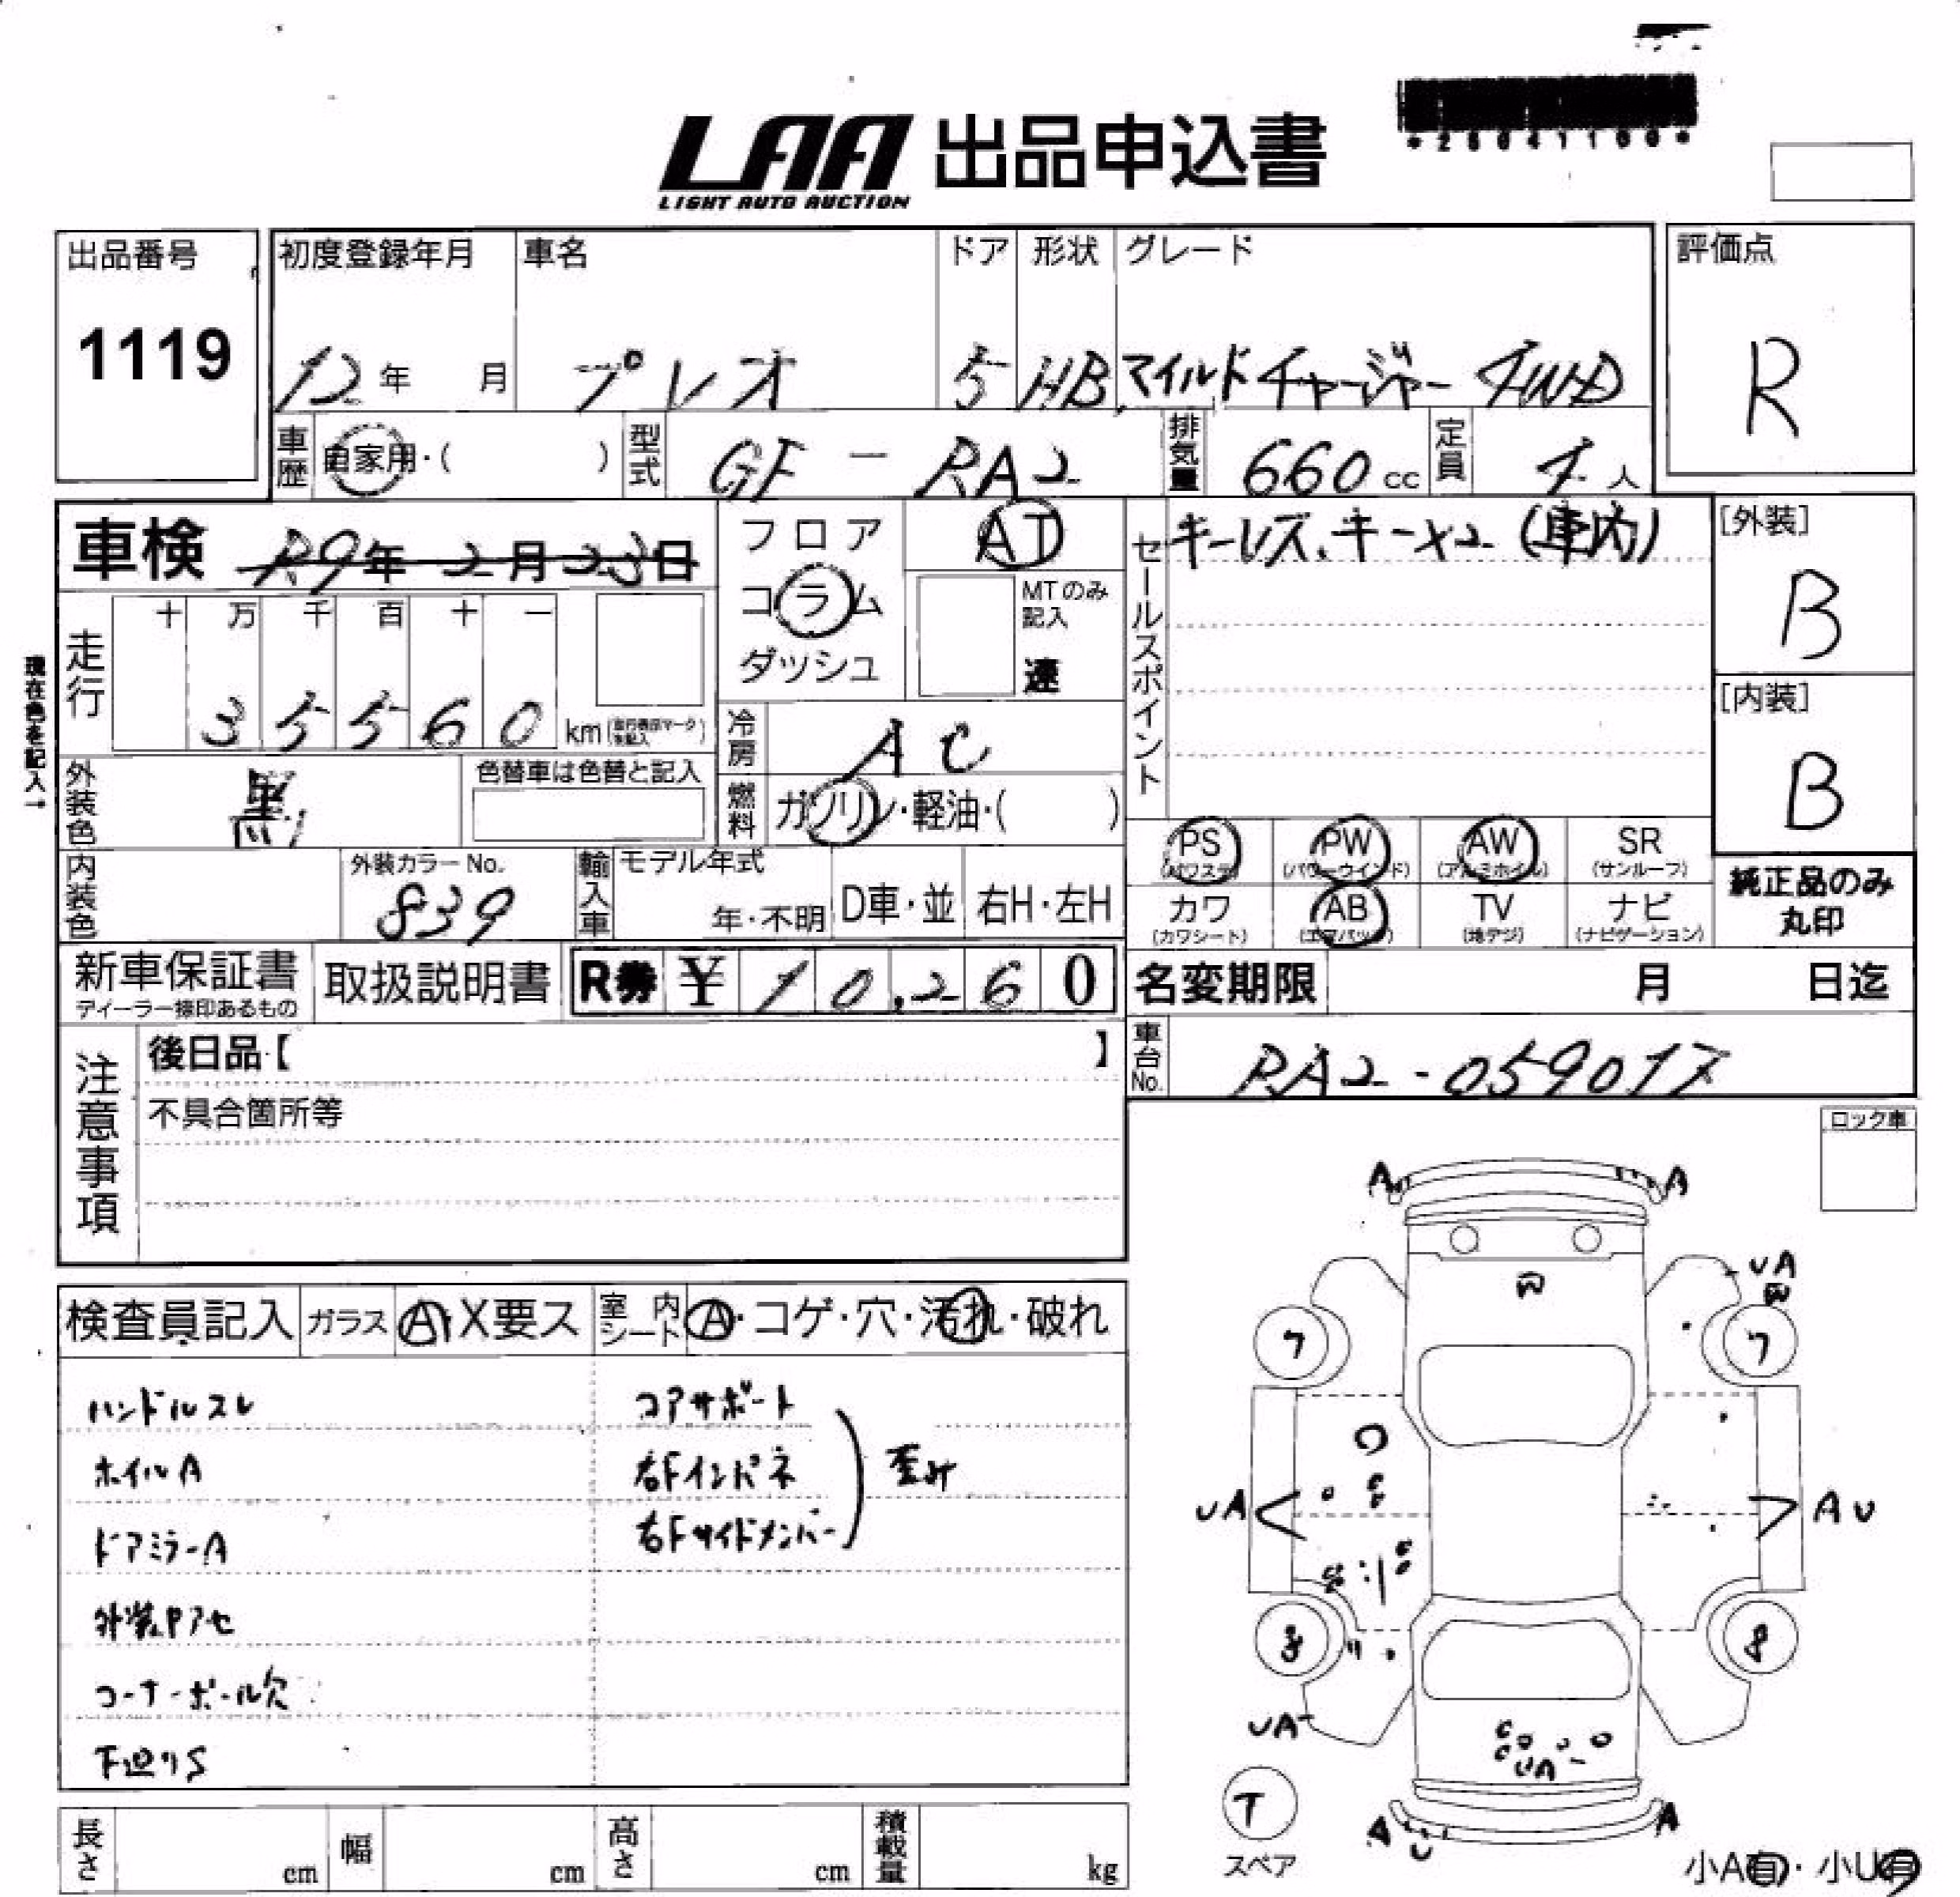 LAA 出品申込書
LIGHT AUTO AUCTION
出品番号
1119
初度登録年月
12年 月
車名
プレオ
ドア
5
形状
HB
グレード
マイルドチャージャー 4WD
評価点
R
車歴
自家用・( )
型式
GF-RA2
排気量
660cc
定員
4人
車検 R9年2月23日
フロア
コラム
ダッシュ
AT
MTのみ記入
速
セールスポイント
キーレス、キー×2(車内)
[外装]
B
[内装]
B
現在色を記入→
走行
十 万 千 百 十 一
3 5 5 6 0 km
冷房
AC
燃料
ガソリン・軽油・( )
外装色
黒
色替車は色替と記入
内装色
外装カラーNo.
839
輸入車
モデル年式
年・不明
D車・並
右H・左H
PS
(パワステ)
PW
(パワーウインド)
AW
(アルミホイル)
SR
(サンルーフ)
カワ
(カワシート)
AB
(エアバッグ)
TV
(地デジ)
ナビ
(ナビゲーション)
純正品のみ
丸印
新車保証書
ディーラー捺印あるもの
取扱説明書
R券 ¥10,260
名変期限 月 日迄
車台No.
RA2-059017
注意事項
後日品【 】
不具合箇所等
ロック車
検査員記入
ガラス
A・X要ス
室内シート
A・コゲ・穴・汚れ・破れ
ハンドルスレ
ホイルA
ドアミラーA
外装色アセ
コーナーポール穴
下廻りS
コアサポート
右Fインパネ
右Fサイドメンバー
歪み
A A
W
UA
W
7 7
UA
AU
8 8
UA
UA
T
スペア
A U A
小A有・小U有
長さ cm
幅 cm
高さ cm
積載量 kg